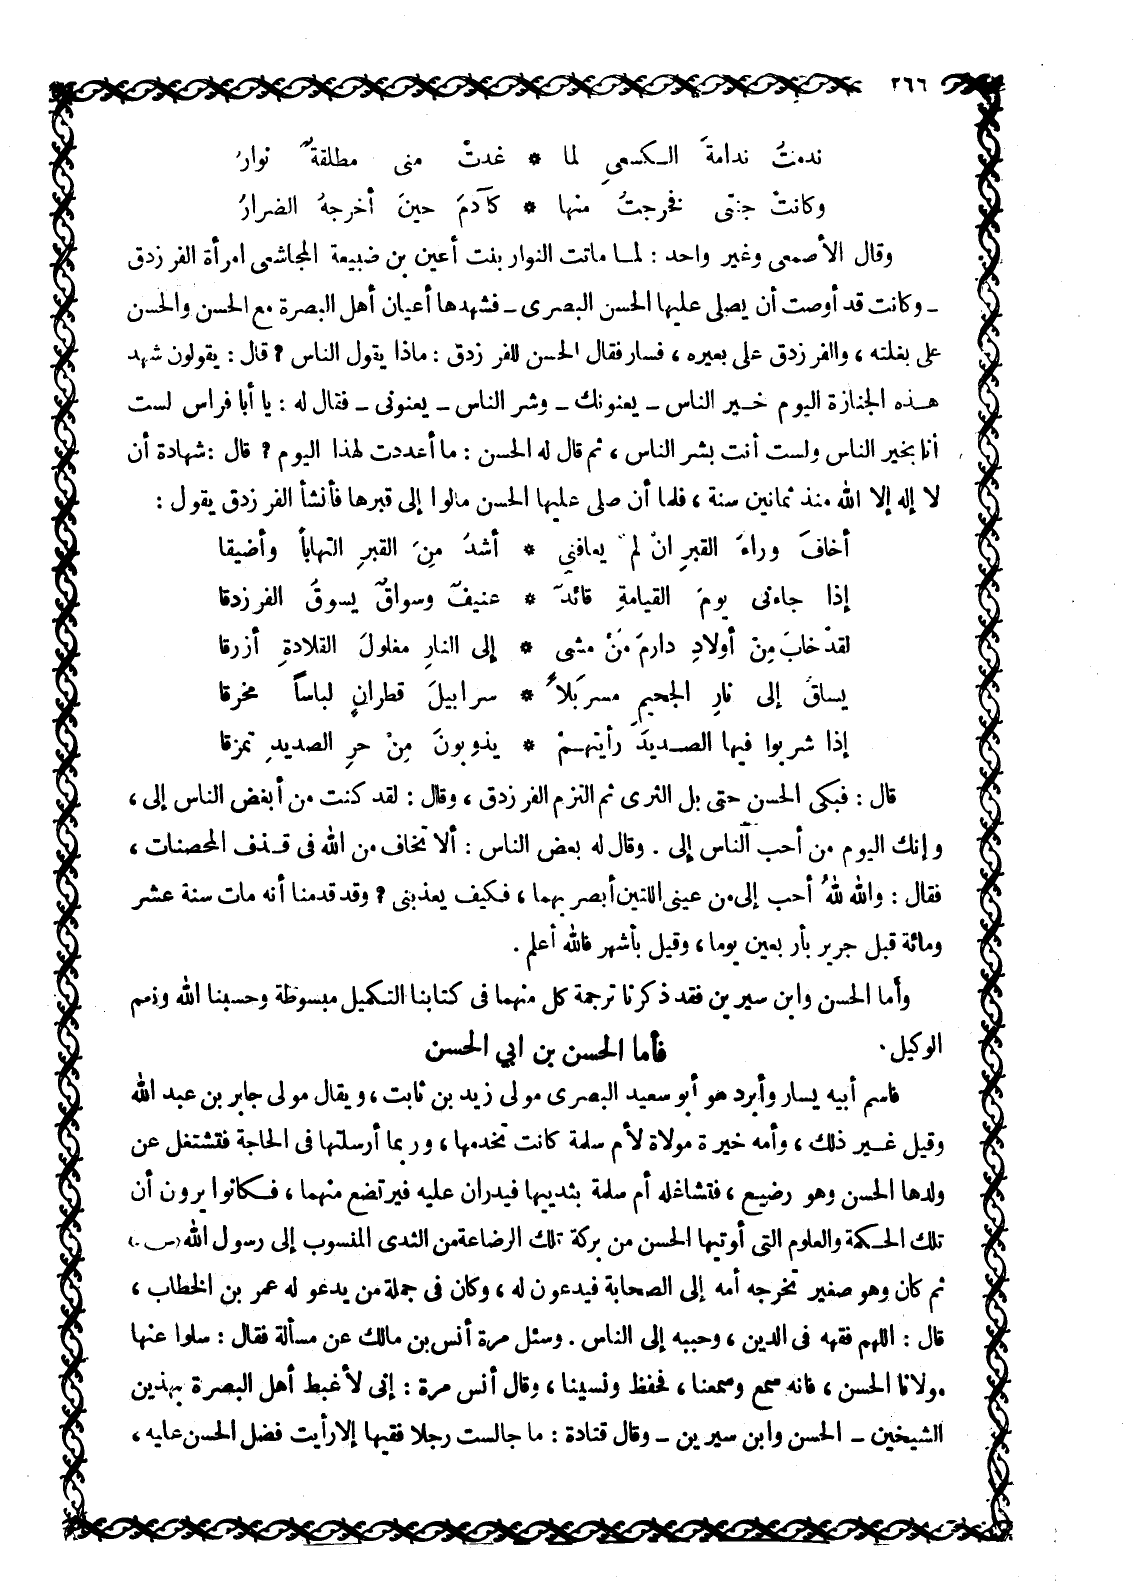 ٢٦٦
ندمتُ ندامةَ الكسعىِ لما * غدتْ منى مطلقةٌ نوارُ
وكانتْ جنتى فخرجتُ منها * كآدمَ حينَ أخرجهُ الضرارُ
وقال الأصمعى وغير واحد : لما ماتت النوار بنت أعين بن ضبيعة المجاشعى امرأة الفرزدق
ـ وكانت قد أوصت أن يصلى عليها الحسن البصرى ـ فشهدها أعيان أهل البصرة مع الحسن والحسن
على بغلته ، والفرزدق على بعيره ، فسار فقال الحسن للفرزدق : ماذا يقول الناس ؟ قال : يقولون شهد
هذه الجنازة اليوم خير الناس ـ يعنونك ـ وشر الناس ـ يعنونى ـ فقال له : يا أبا فراس لست
أنا بخير الناس ولست أنت بشر الناس ، ثم قال له الحسن : ما أعددت لهذا اليوم ؟ قال : شهادة أن
لا إله إلا الله منذ ثمانين سنة ، فلما أن صلى عليها الحسن مالوا إلى قبرها فأنشأ الفرزدق يقول :
أخافَ وراءَ القبرِ انْ لمْ يعافني * أشدُ مِنَ القبرِ التهاباً وأضيقا
إذا جاءنى يومَ القيامةِ قائدٌ * عنيفٌ وسواقٌ يسوقُ الفرزدقا
لقدْ خابَ مِنْ أولادِ دارمَ مَنْ مشى * إلى النارِ مغلولَ القلادةِ أزرقا
يساقُ إلى نارِ الجحيمِ مسربَلاً * سرابيلَ قطرانٍ لباساً مخرقا
إذا شربوا فيها الصديدَ رأيتهمْ * يذوبونَ مِنْ حرِ الصديدِ تمزقا
قال : فبكى الحسن حتى بل الثرى ثم التزم الفرزدق ، وقال : لقد كنت من أبغض الناس إلى ،
وإنك اليوم من أحب الناس إلى . وقال له بعض الناس : ألا تخاف من الله فى قذف المحصنات ،
فقال : والله للهُ أحب إلى من عينى اللتين أبصر بهما ، فكيف يعذبنى ؟ وقد قدمنا أنه مات سنة عشر
ومائة قبل جرير بأربعين يوما ، وقيل بأشهر فالله أعلم .
وأما الحسن وابن سيرين فقد ذكرنا ترجمة كل منهما فى كتابنا التكميل مبسوطة وحسبنا الله ونعم
الوكيل .
فأما الحسن بن ابي الحسن
فاسم أبيه يسار وأبرد هو أبو سعيد البصرى مولى زيد بن ثابت ، ويقال مولى جابر بن عبد الله
وقيل غير ذلك ، وأمه خيرة مولاة لأم سلمة كانت تخدمها ، وربما أرسلتها فى الحاجة فتشتغل عن
ولدها الحسن وهو رضيع ، فتشاغله أم سلمة بثدييها فيدران عليه فيرتضع منهما ، فكانوا يرون أن
تلك الحكمة والعلوم التى أوتيها الحسن من بركة تلك الرضاعة من الثدى المنسوب إلى رسول الله (ص)
ثم كان وهو صغير تخرجه أمه إلى الصحابة فيدعون له ، وكان فى جملة من يدعو له عمر بن الخطاب ،
قال : اللهم فقهه فى الدين ، وحببه إلى الناس . وسئل مرة أنس بن مالك عن مسألة فقال : سلوا عنها
مولانا الحسن ، فانه سمع وسمعنا ، فحفظ ونسينا ، وقال أنس مرة : إنى لأغبط أهل البصرة بهذين
الشيخين ـ الحسن وابن سيرين ـ وقال قتادة : ما جالست رجلا فقيها إلا رأيت فضل الحسن عليه ،